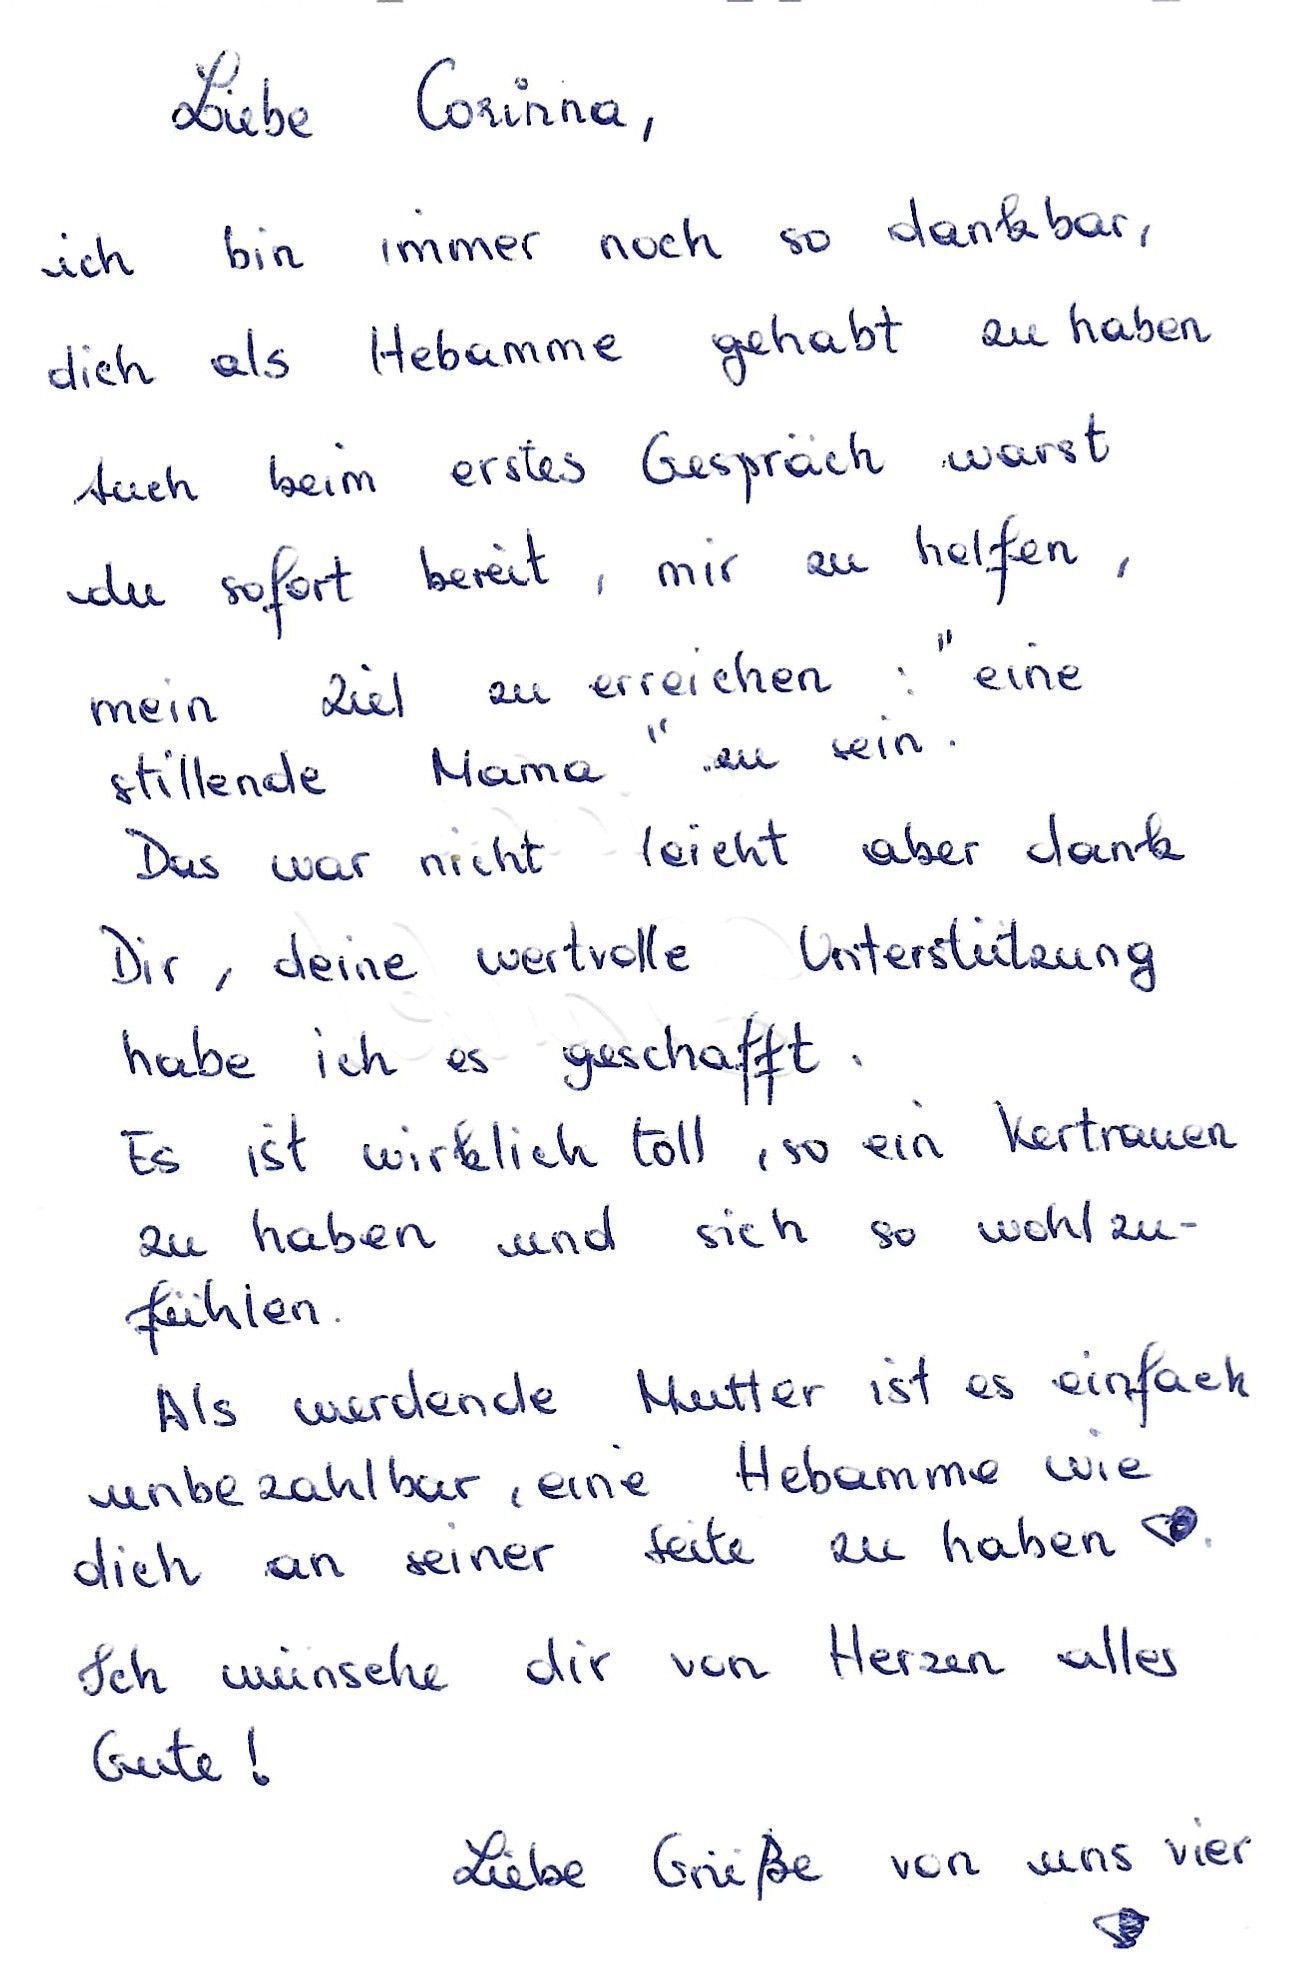 Liebe Corinna,
ich bin immer noch so dankbar,
dich als Hebamme gehabt zu haben
Auch beim erstes Gespräch warst
du sofort bereit, mir zu helfen,
mein Ziel zu erreichen : "eine
stillende Mama" zu sein.
Das war nicht leicht aber dank
Dir, deine wertvolle Unterstützung
habe ich es geschafft.
Es ist wirklich toll, so ein Vertrauen
zu haben und sich so wohlzu-
fühlen.
Als werdende Mutter ist es einfach
unbezahlbar, eine Hebamme wie
dich an seiner Seite zu haben ♥.
Ich wünsche dir von Herzen alles
Gute!
Liebe Grüße von uns vier
♥